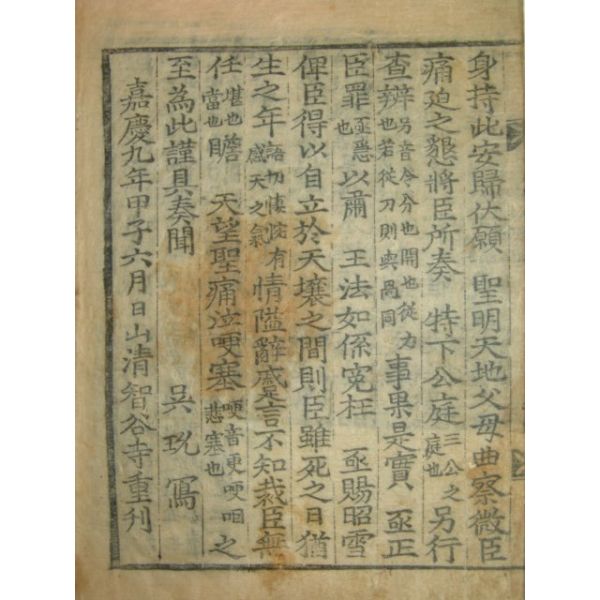 身持此安歸伏願 聖明天地父母曲察微臣
痛迫之懇將臣所奏 特下公庭三公之庭也另行
查辨另音令分也開也從力也若從刀則與咼同 事果是實 亟正
臣罪亟急也以肅 王法如係冤枉 亟賜昭雪
俾臣得以自立於天壤之間則臣雖死之日猶
生之年語切悽惋有感天之氣情隘辭蹙言不知裁臣無
任堪也當也瞻 天望聖痛泣哽塞哽音更哽咽悲塞也之
至為此謹具奏聞 吳玧寫
嘉慶九年甲子六月日山清智谷寺重刊